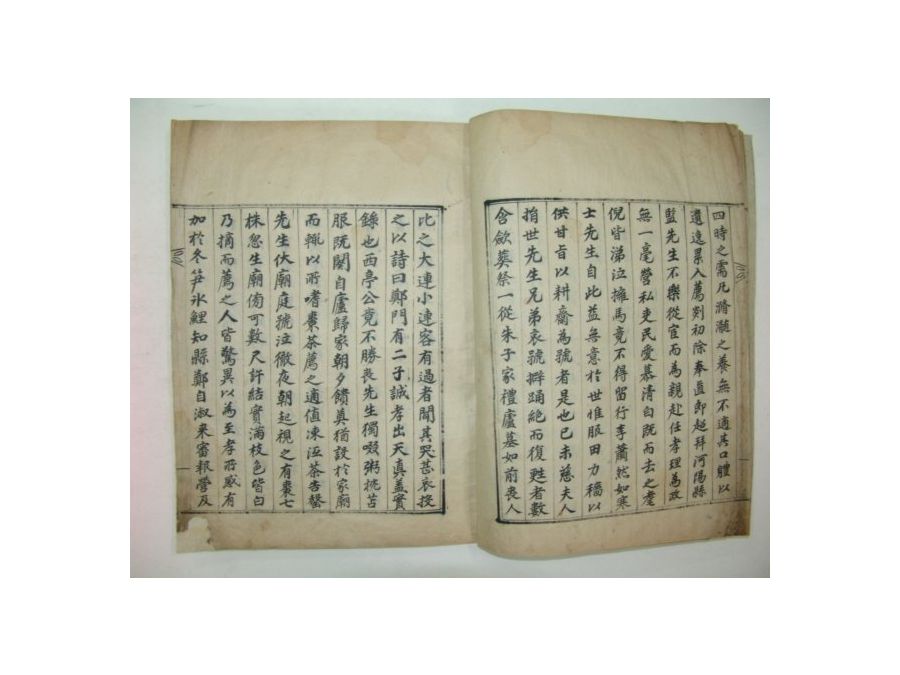 四時之需凡滫瀡之養無不適其口體以
遺逸累入薦剡初除奉直郎超拜河陽縣
監先生不樂從宦而為親赴任孝理為政
無一毫營私吏民愛慕清白旣而去之耄
倪皆涕泣擁馬竟不得留行李蕭然如寒
士先生自此益無意於世惟服田力穡以
供甘旨以耕齋為號者是也已未慈夫人
捐世先生兄弟哀號擗踊絶而復甦者數
含斂葬祭一從朱子家禮廬墓如前喪人
比之大連小連客有過者聞其哭甚哀投
之以詩曰鄭門有二子誠孝出天真盖實
錄也西亭公竟不勝喪先生獨啜粥枕苫
服旣闋自廬歸家朝夕饋奠猶設於家廟
而輒以所嗜棗茶薦之適値凍沍茶杏罄
先生伏廟庭號泣徹夜朝起視之有棗七
株忽生廟傍可數尺許結實滿枝色皆白
乃摘而薦之人皆驚異以為至孝所感有
加於冬笋氷鯉知縣鄭自淑来審報營及